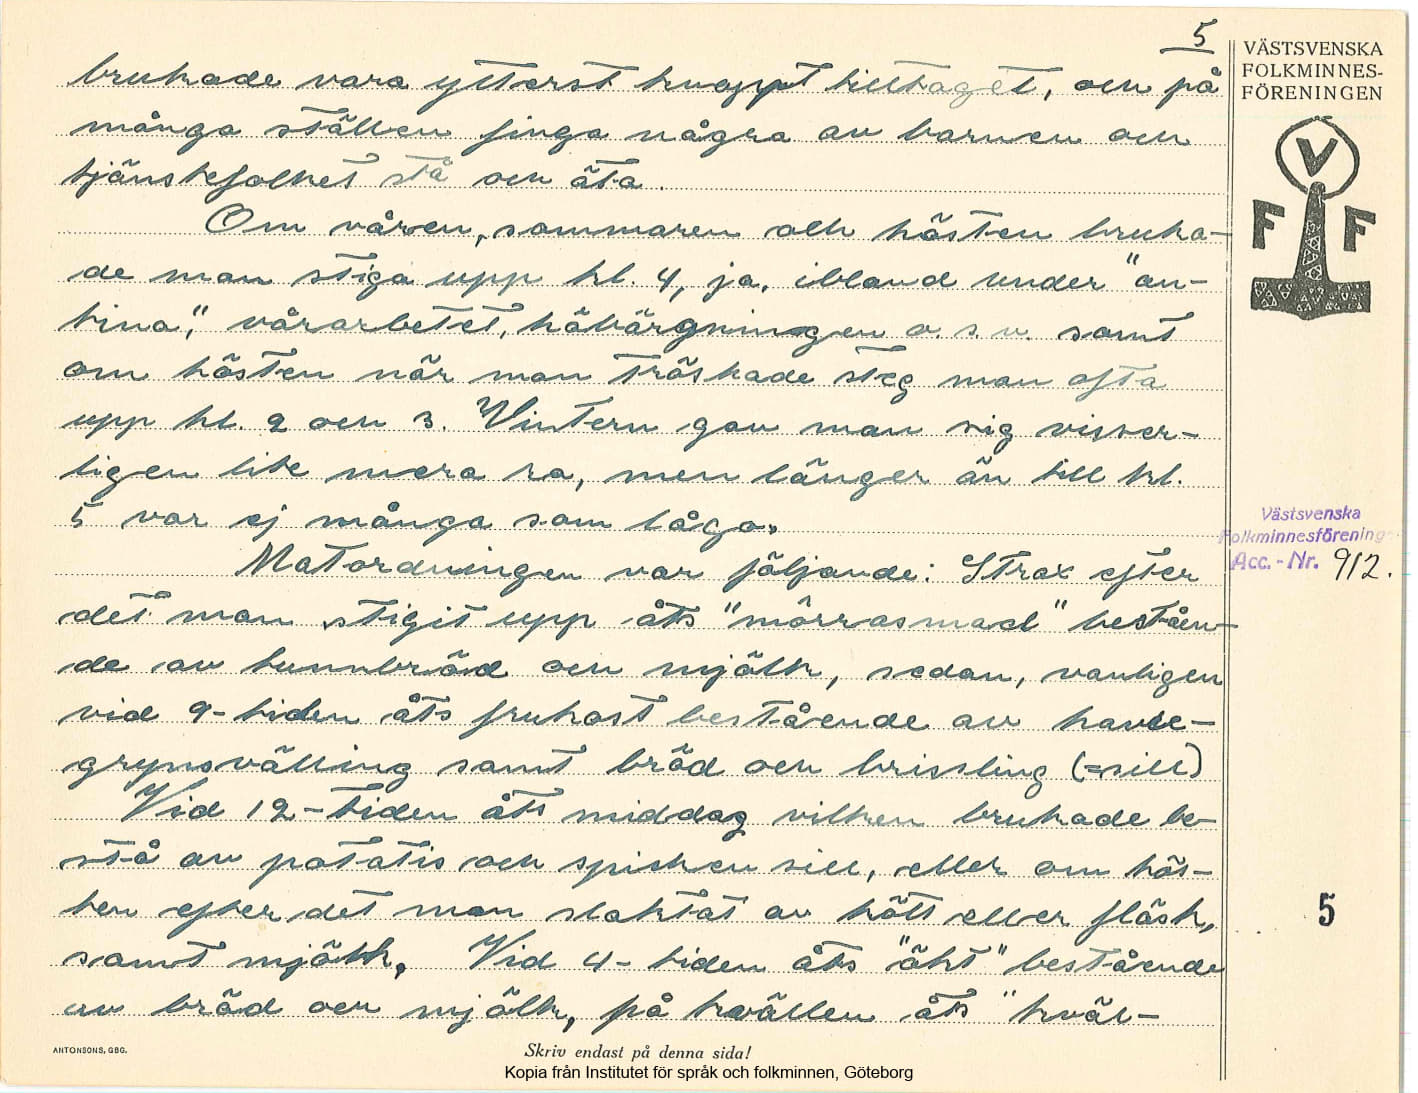 5
VÄSTSVENSKA
FOLKMINNES-
FÖRENINGEN
V
F F
brukade vara ytterst knappt tilltaget, och på
många ställen finga några av barnen och
tjänstefolket stå och äta.
Om våren, sommaren och hösten bruka-
de man stiga upp kl. 4, ja, ibland under "an-
tina", vårarbetet, håbärgningen o. s. v. samt
om hösten när man tröskade steg man ofta
upp kl. 2 och 3. Vintern gav man sig visser-
ligen lite mera ro, men länger än till kl.
5 var ej många som lågo.
Matordningen var följande: Strax efter
det man stigit upp åts "mörrasmad" beståen-
de av tunnbröd och mjölk, sedan, vanligen
vid 9-tiden åts frukost bestående av havre-
grynsvälling samt bröd och brissling (=sill)
Vid 12-tiden åts middag vilken brukade be-
stå av potatis och spicken sill, eller om hös-
ten efter det man slaktat av kött eller fläsk,
samt mjölk. Vid 4-tiden åts "äkt" bestående
av bröd och mjölk, på kvällen åts "kväl-
Västsvenska
Folkminnesförening
Acc.-Nr. 912.
5
ANTONSONS, GBG.
Skriv endast på denna sida!
Kopia från Institutet för språk och folkminnen, Göteborg